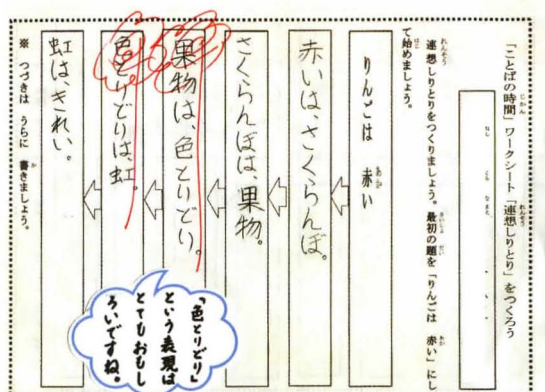 「ことばの時間」ワークシート 「連想しりとり」をつくろう
連想しりとりをつくりましょう。最初の題を「りんごは 赤い」にし
て始めましょう。
りんごは 赤い
赤いは、さくらんぼ。
さくらんぼは、果物。
果物は、色とりどり。
色とりどりは、虹。
虹は、きれい。
※ つづきは うらに 書きましょう。
「色とりどり」
という表現は
とてもおもし
ろいですね。